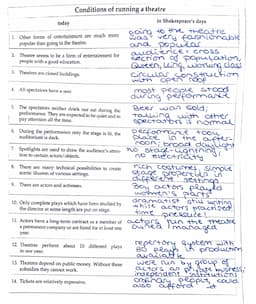 Conditions of running a theatre
today
in Shakespeare's days
1. Other forms of entertainment are much more
popular than going to the theatre.
going to the theatre
was very fashionable
and popular
2. Theatre seems to be a form of entertainment for
people with a good education.
audience: cross
section of population,
Queen, king, working class
3. Theatres are closed buildings.
circular construction
with open roof
4. All spectators have a seat.
most people stood
during performance
5. The spectators neither drink nor eat during the
performance. They are expected to be quiet and to
pay attention all the time.
Beer was sold;
talking with other
spectators is normal
6. During the performance only the stage is lit, the
auditorium is dark.
performance took
place in the after-
noon; broad daylight
7. Spotlights are used to draw the audience's atten-
tion to certain actors/objects.
no stage-lighting,
no electricity
8. There are many technical possibilities to create
scenic illusion of various settings.
rich costumes, simple
stage property
different settings
9. There are actors and actresses.
Boy actors played
women's parts
10. Only complete plays which have been studied by
the director at some length are put on stage.
dramatist still writing
while actors practised
time pressure!
11. Actors have a long-term contract as a member of
a permanent company or are hired for at least one
year.
actors run the theatre
owned / managed
12. Theatres perform about 10 different plays
in one year.
repertory system with
plays in production
available
13. Theatres depend on public money. Without these
subsidies they cannot work.
were run by group of
actors as private business,
independent institutions
14. Tickets are relatively expensive.
ordinary people could
also afford it